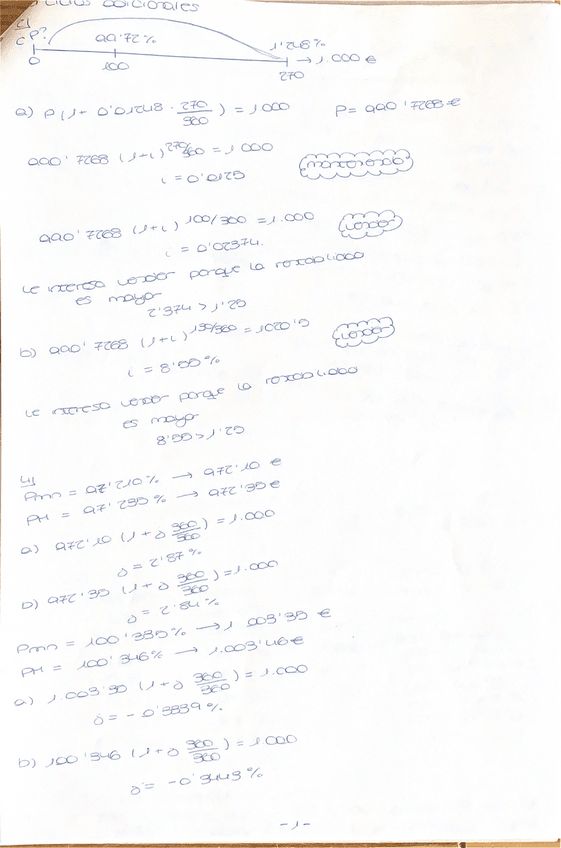 adicionales
c)
c P?
99'72 %
1'248 %
0
100
270
→ 1.000 €
a) P (1 + 0'01248 · 270/360) = 1000 P = 990'7268 €
990'7268 (1+i)^270/360 = 1000
i = 0'0125
mantenerlo
990'7268 (1+i)^100/360 = 1.000
i = 0'02374.
vender
Le interesa vender porque la rentabilidad
es mayor
2'374 > 1'25
b) 990'7268 (1+i)^130/360 = 1020'5
vender
i = 8'55 %
Le interesa vender porque la rentabilidad
es mayor
8'55 > 1'25
4)
Pmn = 97'210 % → 972'10 €
PM = 97'235 % → 972'35 €
a) 972'10 (1 + i 360/360) = 1.000
i = 2'87 %
b) 972'35 (1 + i 360/360) = 1.000
i = 2'84 %
Pmn = 100'335 % → 1 003'35 €
PM = 100'346 % → 1.003'46 €
a) 1.003'35 (1 + i 360/360) = 1.000
i = - 0'3339 %.
b) 100'346 (1 + i 360/360) = 1.000
i = - 0'3448 %
- 1 -